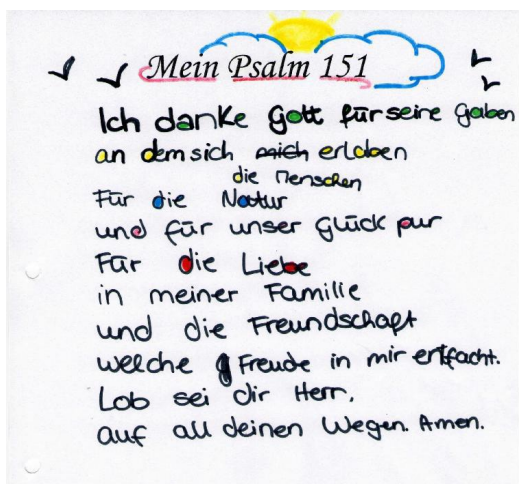 Mein Psalm 151
Ich danke Gott für seine Gaben
an dem sich mich erlaben
die Menschen
Für die Natur
und für unser Glück pur
Für die Liebe
in meiner Familie
und die Freundschaft
welche Freude in mir entfacht.
Lob sei dir Herr,
auf all deinen Wegen. Amen.